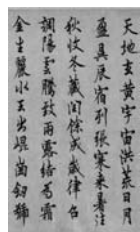 天地玄黃宇宙洪荒日月
盈昃辰宿列張寒來暑往
秋收冬藏閏餘成歲律召
調陽雲騰致雨露結為霜
金生麗水玉出崐崗劒號